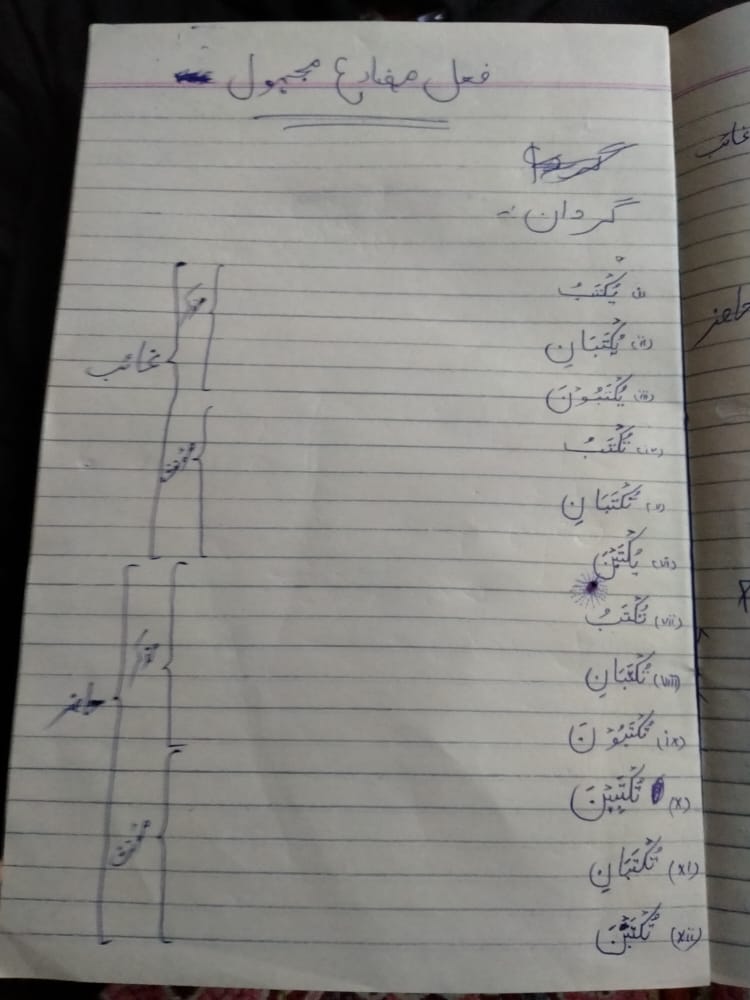 فعل مضارع مجہول
گردان :-
(i) يُكْتَبُ
(ii) يُكْتَبَانِ
(iii) يُكْتَبُوْنَ
(iv) تُكْتَبُ
(v) تُكْتَبَانِ
(vi) يُكْتَبْنَ
(vii) تُكْتَبُ
(viii) تُكْتَبَانِ
(ix) تُكْتَبُوْنَ
(x) تُكْتَبِيْنَ
(xi) تُكْتَبَانِ
(xii) تُكْتَبْنَ
مذکر
غائب
مؤنث
مذکر
حاضر
مؤنث
غائب
حاضر